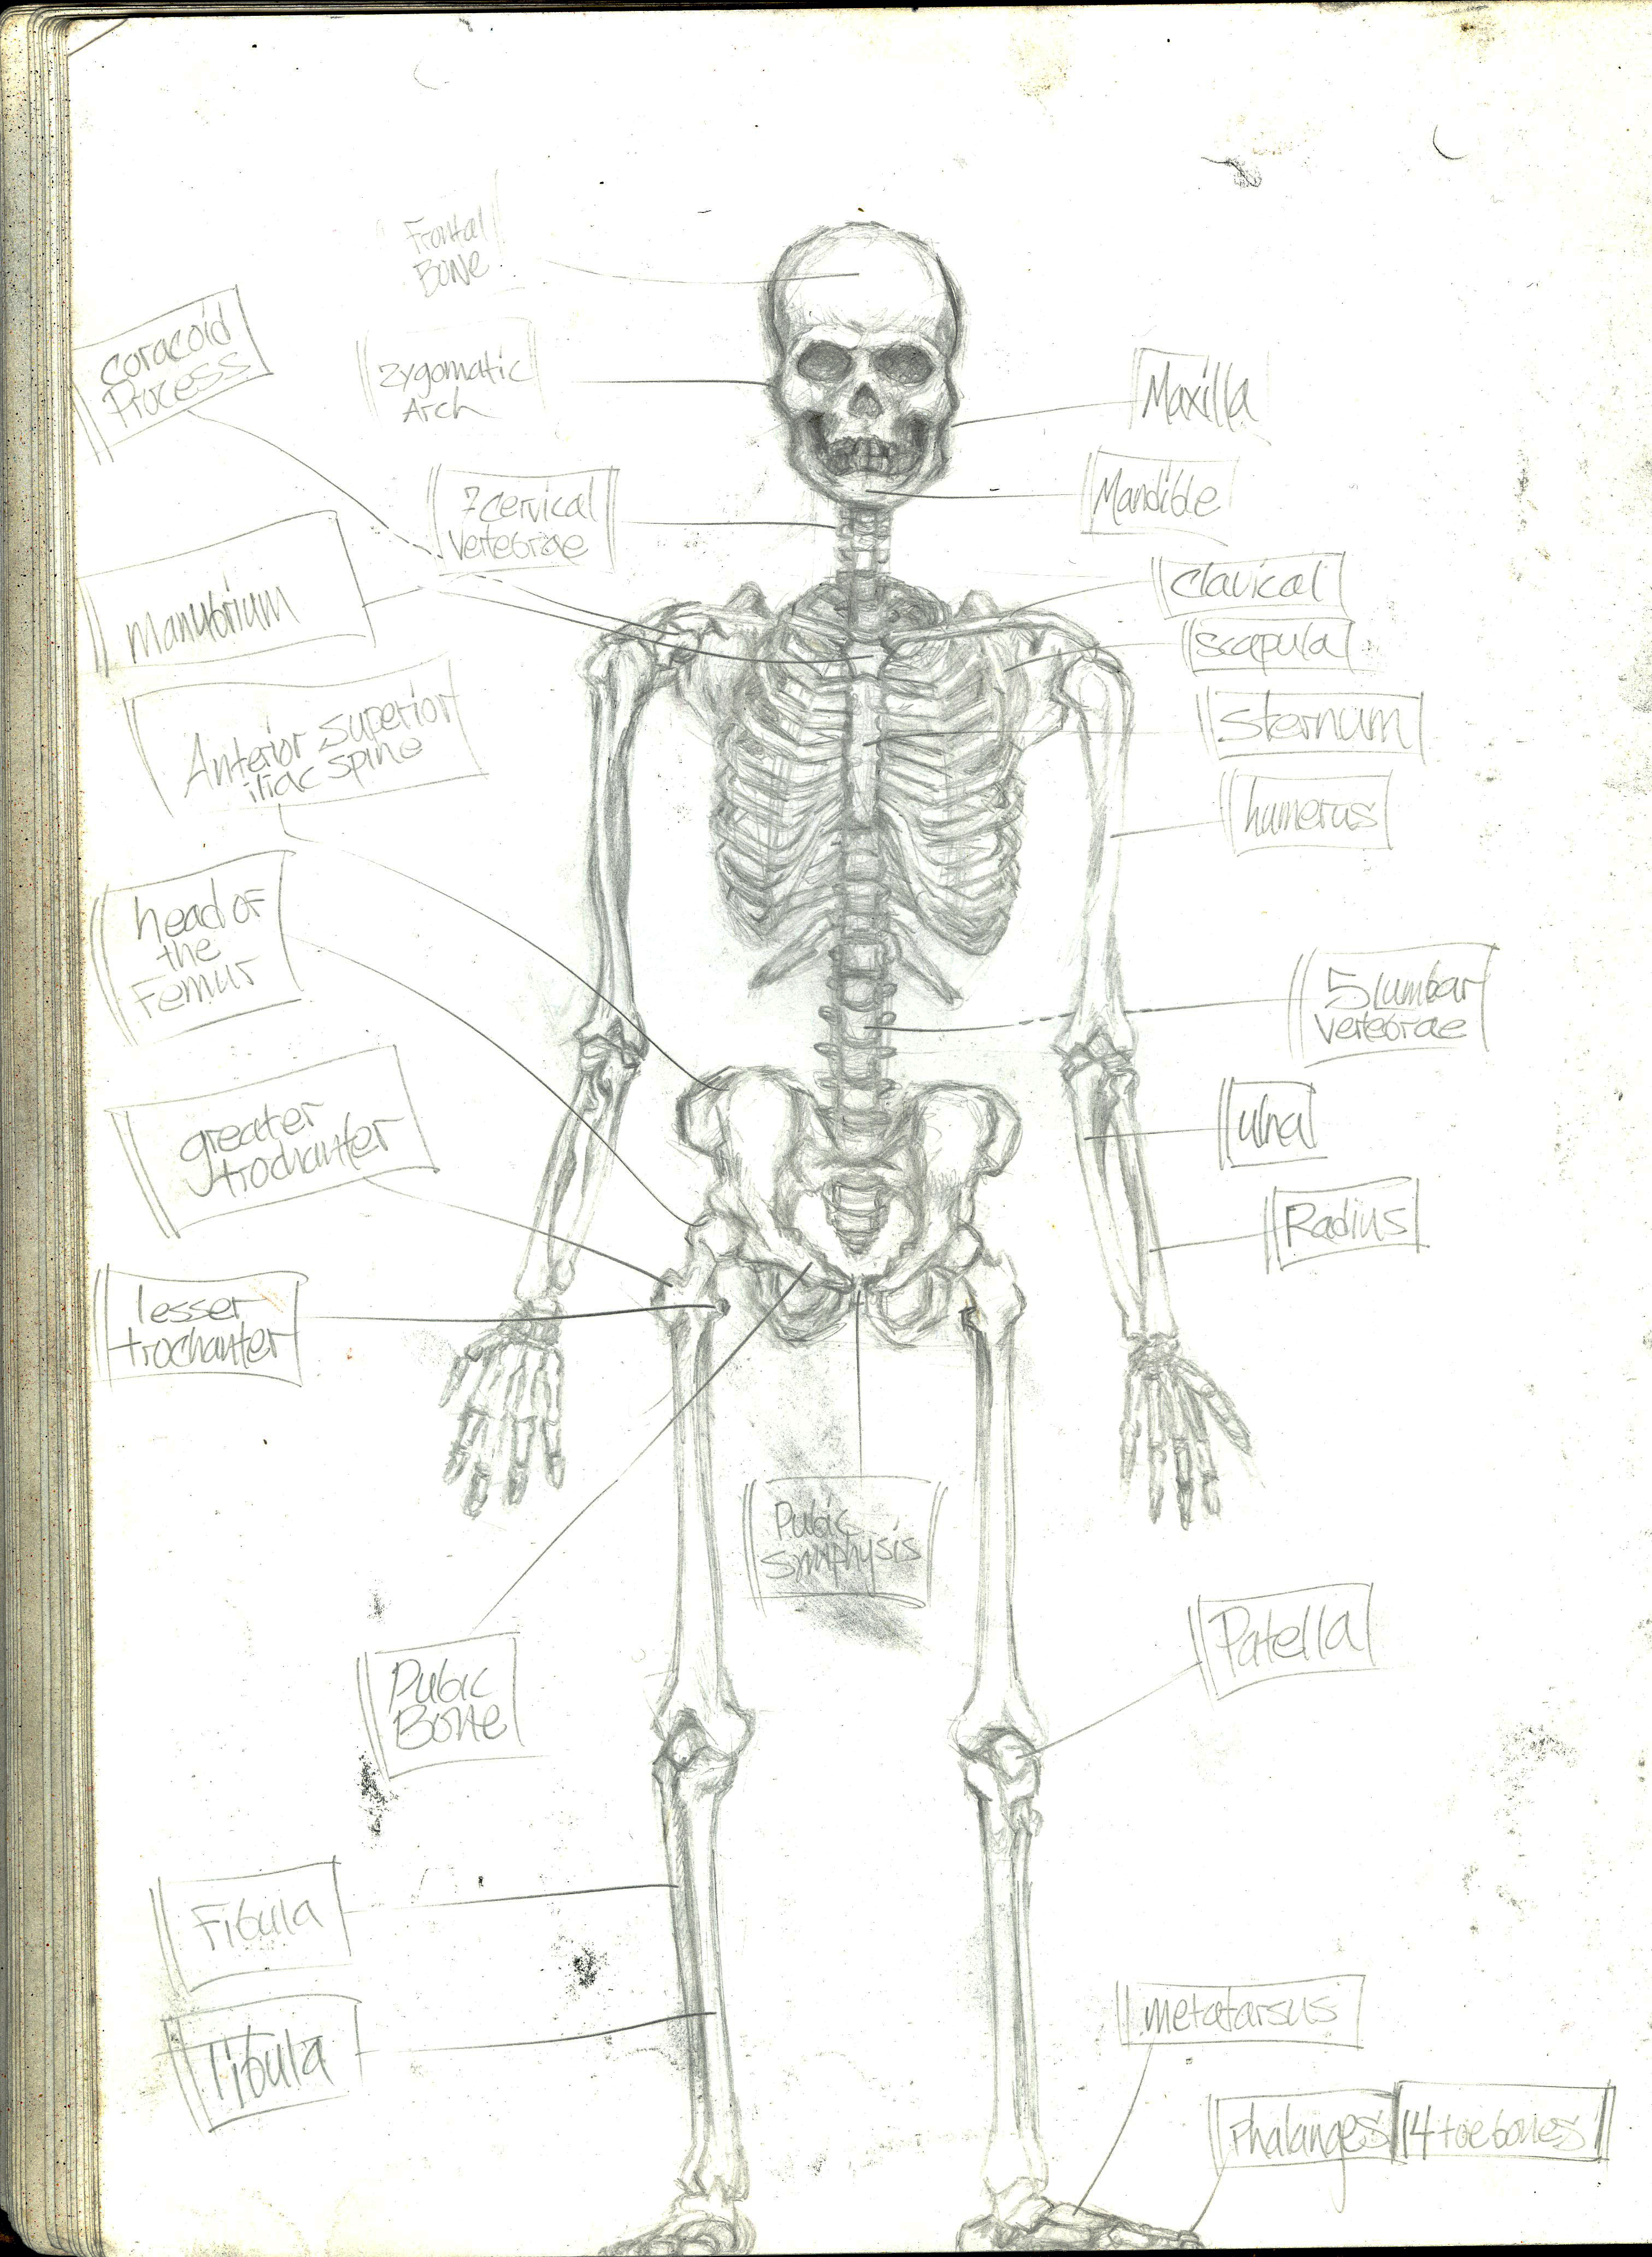 Frontal
Bone
coracoid
Process
zygomatic
Arch
Maxilla
7 cervical
vertebrae
Mandible
manubrium
clavical
scapula
Anterior superior
iliac spine
sternum
humerus
head of
the
Femur
5 lumbar
vertebrae
greater
trochanter
ulna
Radius
lesser
trochanter
Pubic
Symphysis
Pubic
Bone
Patella
Fibula
Tibula
metatarsus
Phalanges 14 toe bones